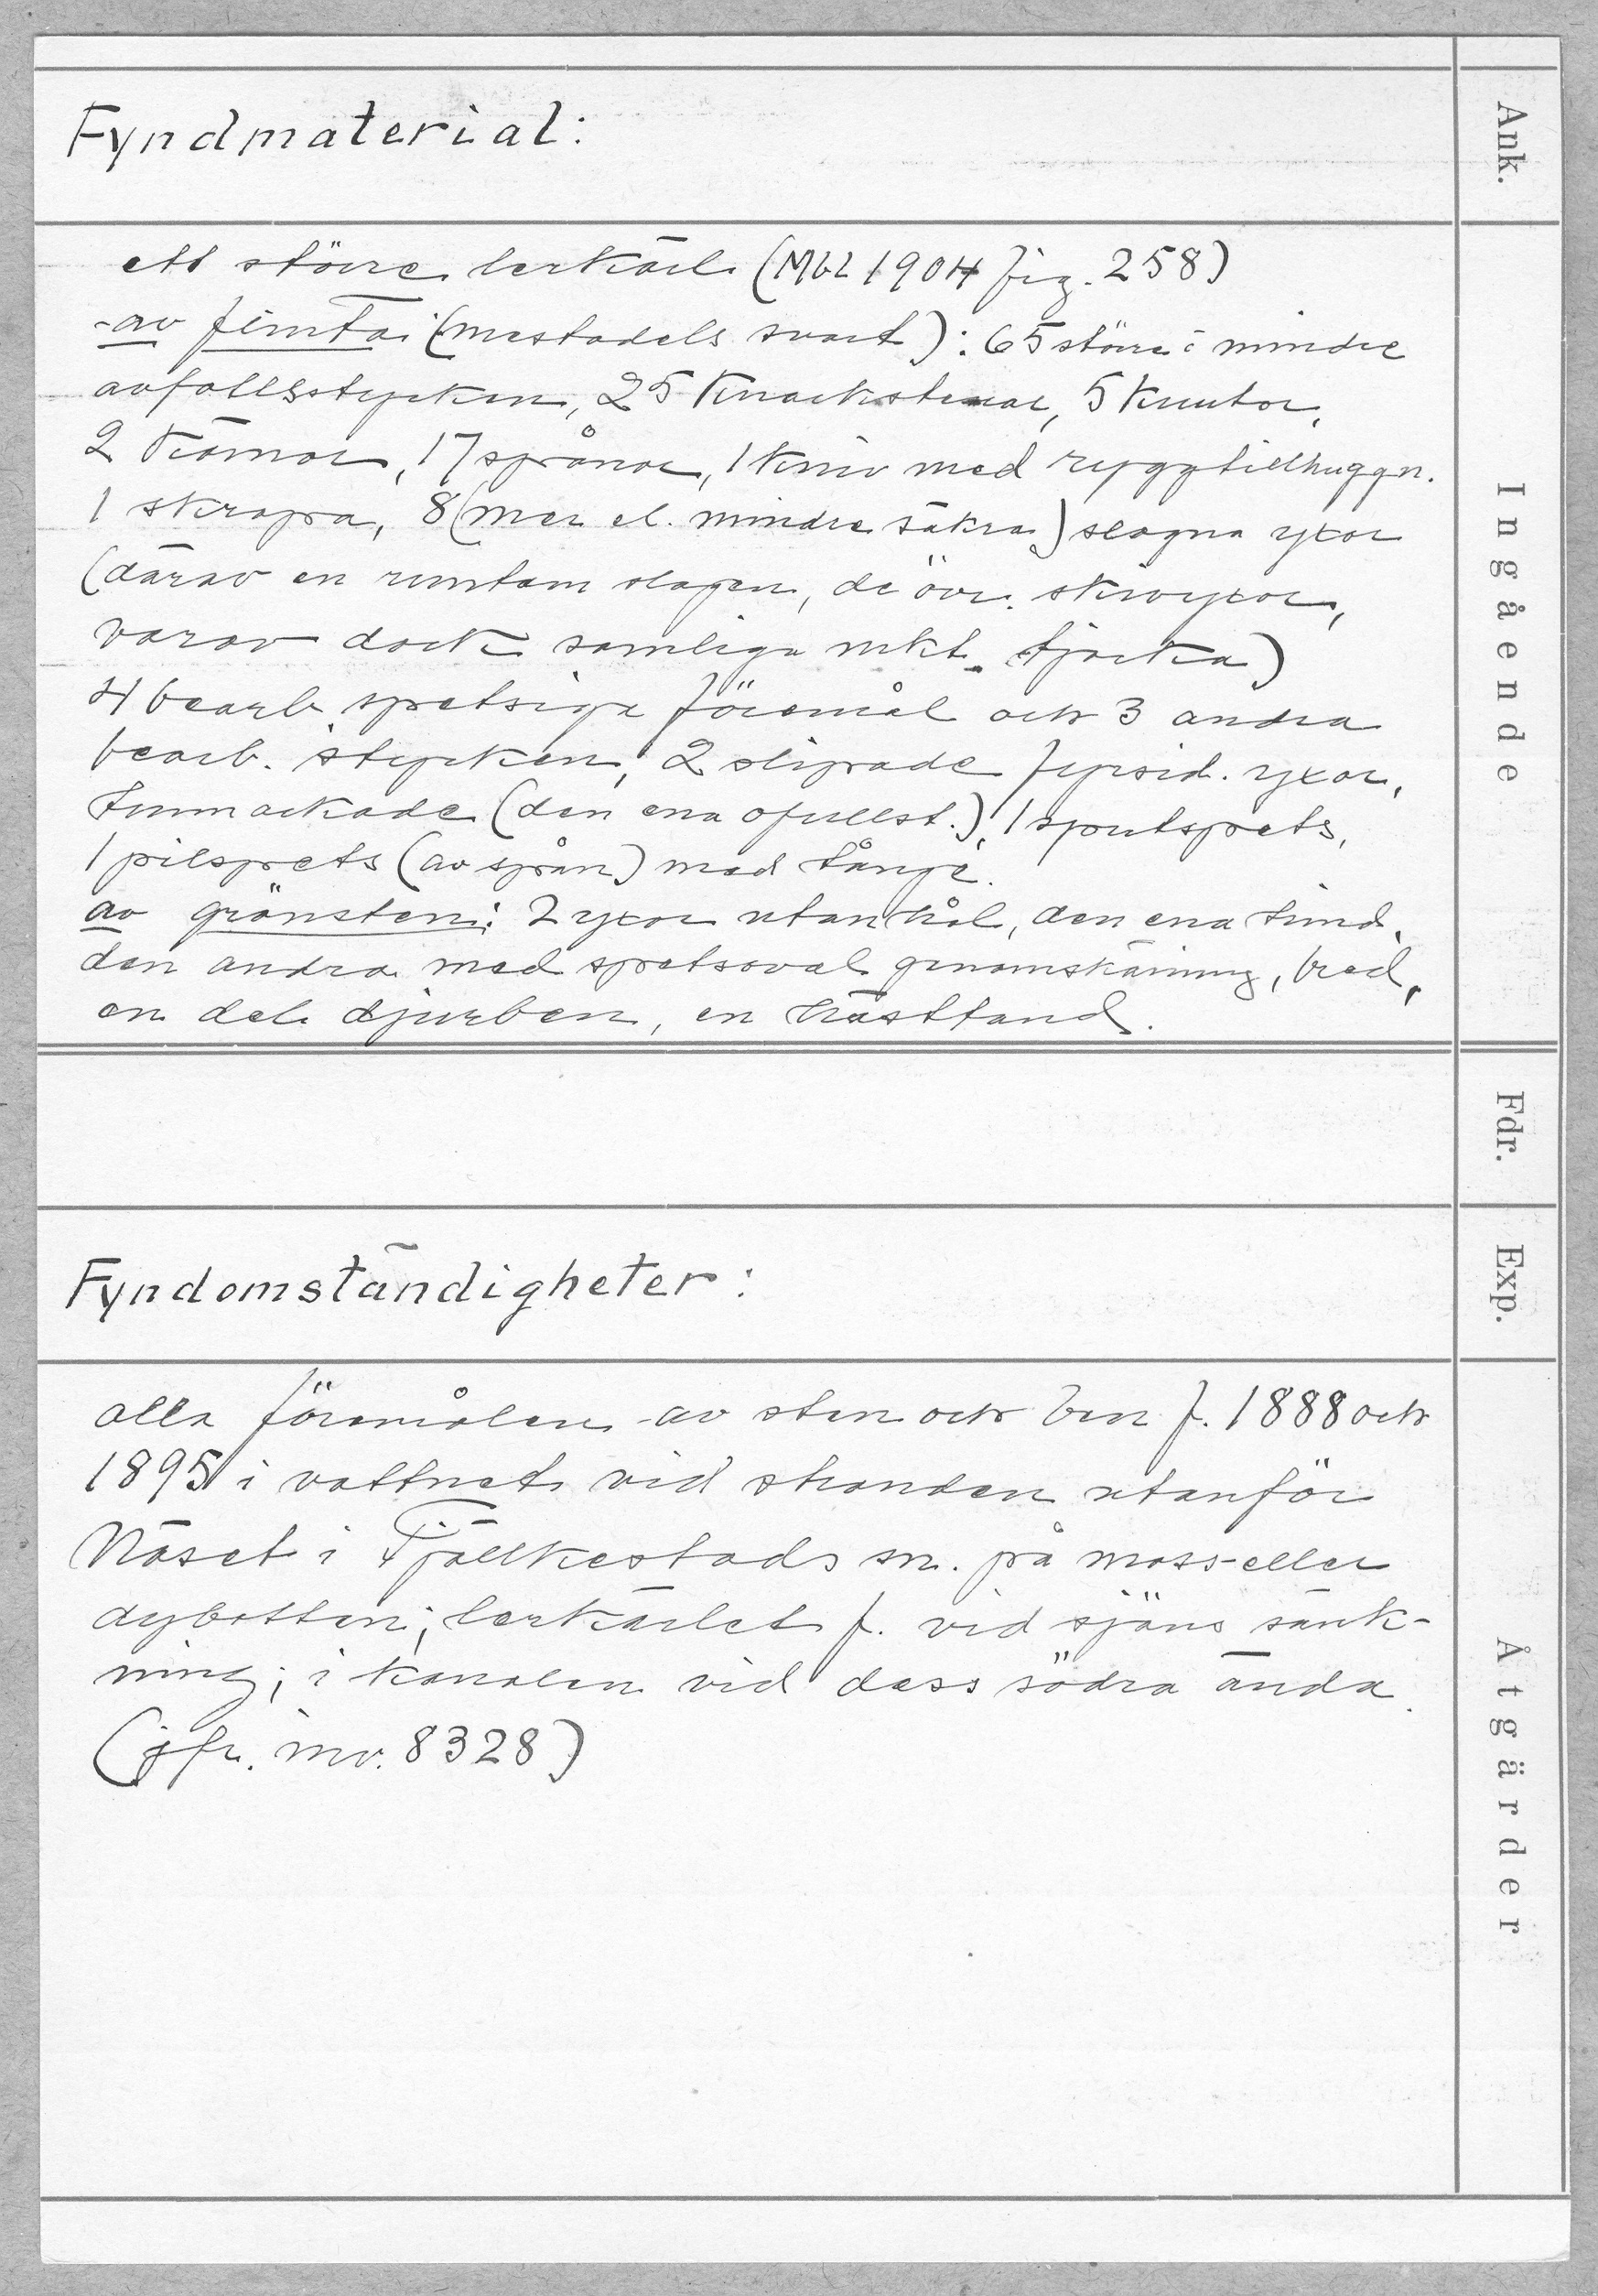 Fyndmaterial:
Ank.
ett större lerkärl (MbL 1904 fig. 258)
av flinta: (mestadels svart): 65 större i mindre
avfallsstycken, 25 knackstenar, 5 knutor,
2 kärnor, 17 spånor, 1 kniv med ryggtillhuggn.
1 skrapa, 8 (mer el. mindre säkra) slagna yxor
(därav en runtom slagen, de övr. skivyxor,
varav dock somliga mkt. tjocka)
4 bearb. spetsiga föremål och 3 andra
bearb. stycken, 2 slipade fyrsid. yxor,
tunnackade (den ena ofullst.), 1 spjutspets,
1 pilspets (av spån) med tånge.
av grönsten: 2 yxor utan hål, den ena
den andra med spetsoval genomskärning, bred,
en del djurben, en hästtand.
Ingående
Fdr.
Fyndomständigheter:
Exp.
alla föremålen av sten och ben f. 1888 och
1895 i vattnet vid stranden utanför
Näset i Fjällkestads sn. på moss- eller
dybotten; lerkärlet f. vid sjöns sänk-
ning; i kanalen vid dess södra ända.
(jfr. inv. 8328)
Åtgärder